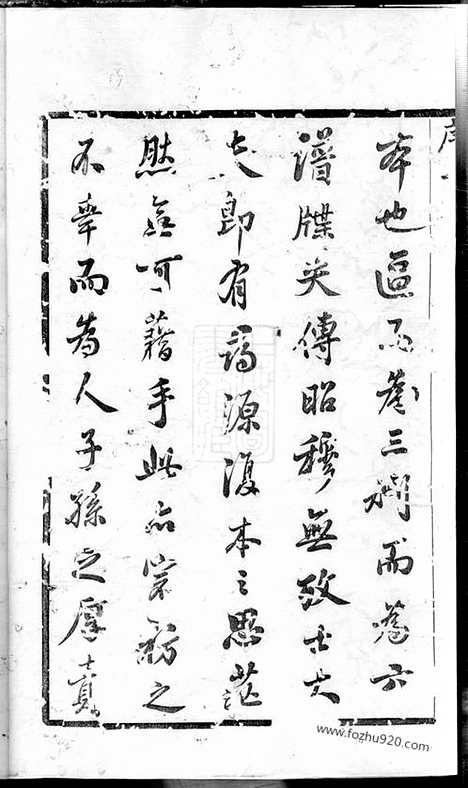 序
本也區而為三而為六
譜牒失傳昭穆無攷士大
夫即有窮源復本之思茫
然無可藉手此亦宗祊之
不幸而為人子孫之厚
www.fozhu920.com